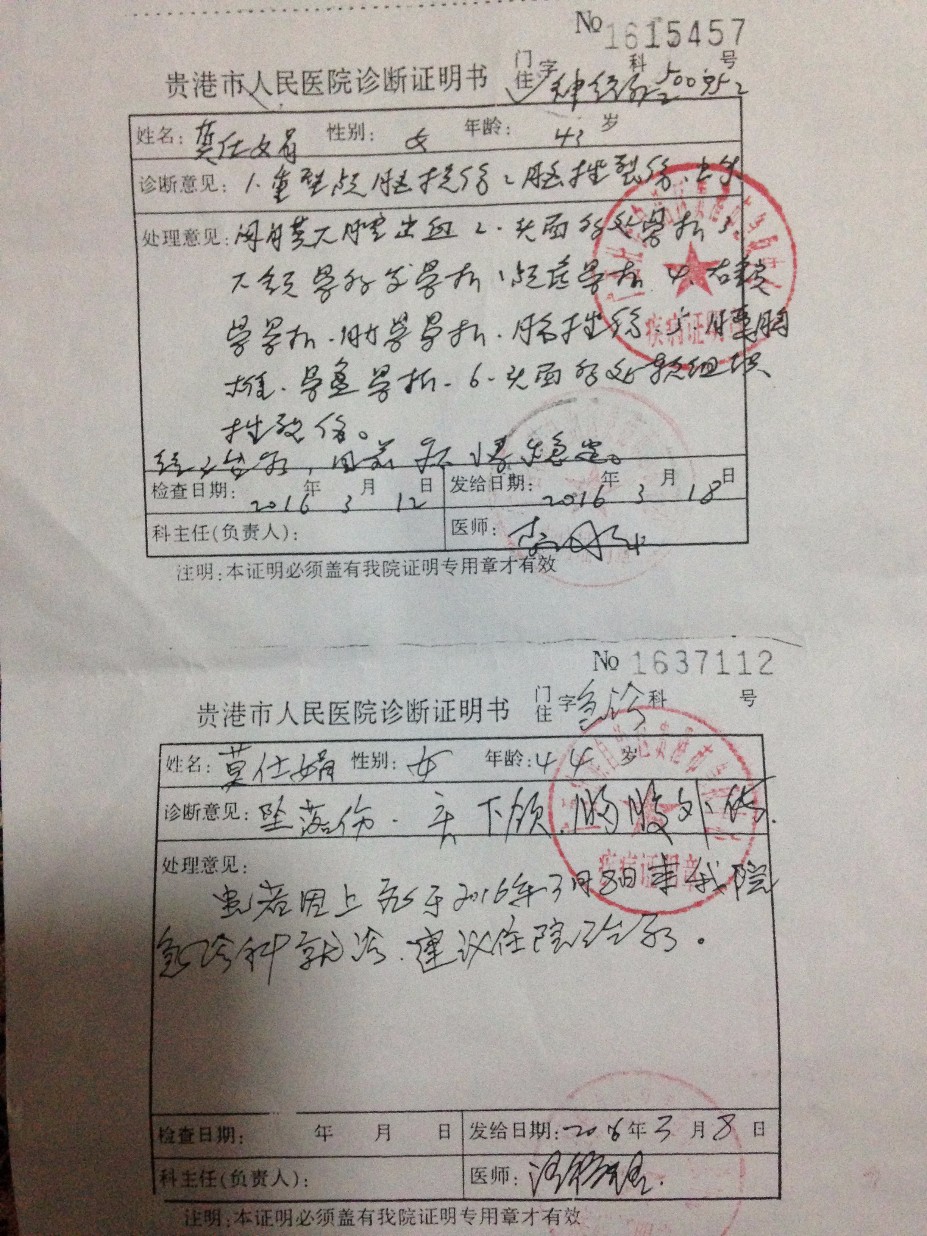 No 1615457
贵港市人民医院诊断证明书 门住 字 神经外 科 号
姓名: 莫仕娟 性别: 女 年龄: 43 岁
诊断意见: 1.重型颅脑损伤:脑挫裂伤、
处理意见: 蛛网膜下腔出血 2.头面部多处骨折 3.
颌骨 骨折、颅底骨折 4.右锁
骨骨折、肋骨骨折、肺挫伤 5. 腰
椎、骨盆骨折 6.头面部多处软组织
挫裂伤。
经 治疗,目前病情稳定。
检查日期: 2016 年 3 月 12 日 发给日期: 2016 年 3 月 18 日
科主任(负责人): 医师:
注明:本证明必须盖有我院证明专用章才有效
疾病证明章
No 1637112
贵港市人民医院诊断证明书 门住 字 急诊 科 号
姓名: 莫仕娟 性别: 女 年龄: 44 岁
诊断意见: 坠落伤、头、下颌、胸腹外伤.
处理意见:
患者因上述于2016年3月8日来我院
急诊科就诊、建议住院治疗。
检查日期: 年 月 日 发给日期: 2016 年 3 月 8 日
科主任(负责人): 医师:
注明:本证明必须盖有我院证明专用章才有效
疾病证明章